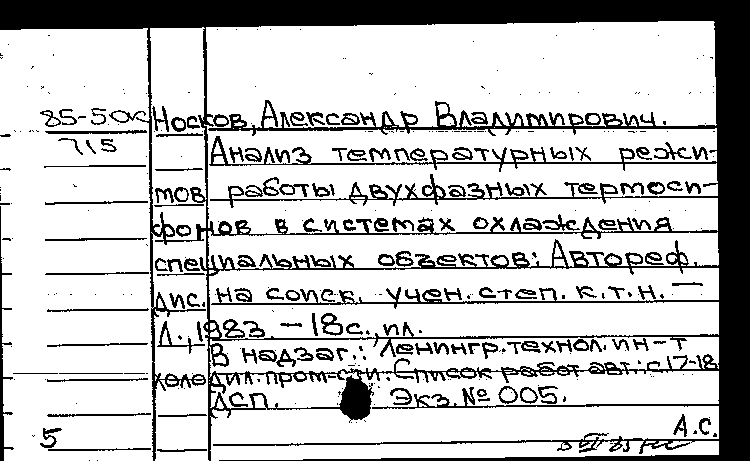 85-5ок Носков, Александр Владимирович.
715
Анализ температурных режи-
мов работы двухфазных термоси-
фонов в системах охлаждения
специальных объектов: Автореф.
дис. на соиск. учен. степ. к.т.н. —
Л., 1983. – 18 с., ил.
В надзаг.: Ленингр. технол. ин-т
холодил. пром-сти. Список работ авт.: с.17-18
ДСП. Экз. № 005.
А.С.
5